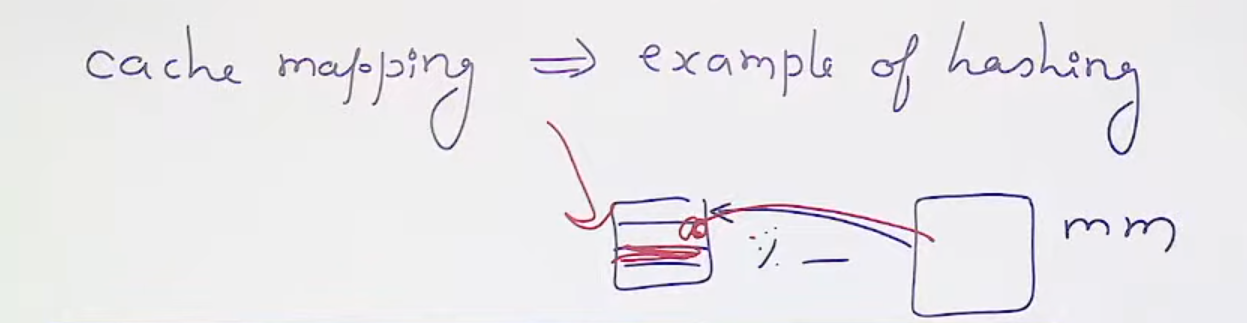 cache mapping ⇒ example of hashing
% — mm